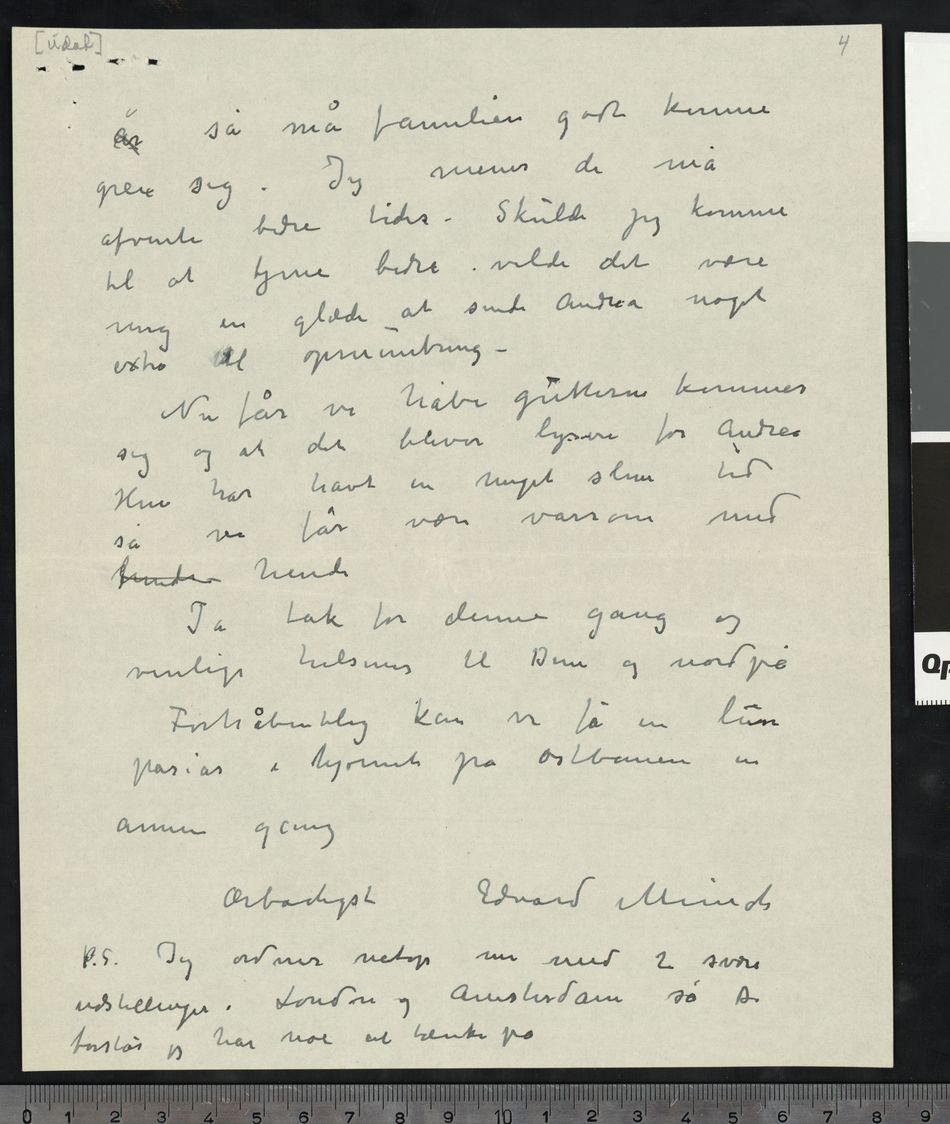 [udat] 4
år så må familien godt kunne
greie sig. Jeg mener de må
afvente bedre tider. Skulde jeg komme
til at tjene bedre. vilde det være
mig en glæde at sende Andrea noget
extra til opmuntring –
Nu får vi håbe gutterne kommer
sig og at det bliver lysere for Andrea
Hun har havt en meget slem tid
så vi får være varsom med
hende
Ja tak for denne gang og
venlige hilsener til Dem og nordpå
Forhåbentlig kan vi få en lun
passiar i hjørnet på Østbanen en
annen gang
Ærbødigst Edvard Munch
P.S. Jeg ordner netop nu med 2 svære
udstillinger. London og Amsterdam så De
forstår jeg har noe at tænke på